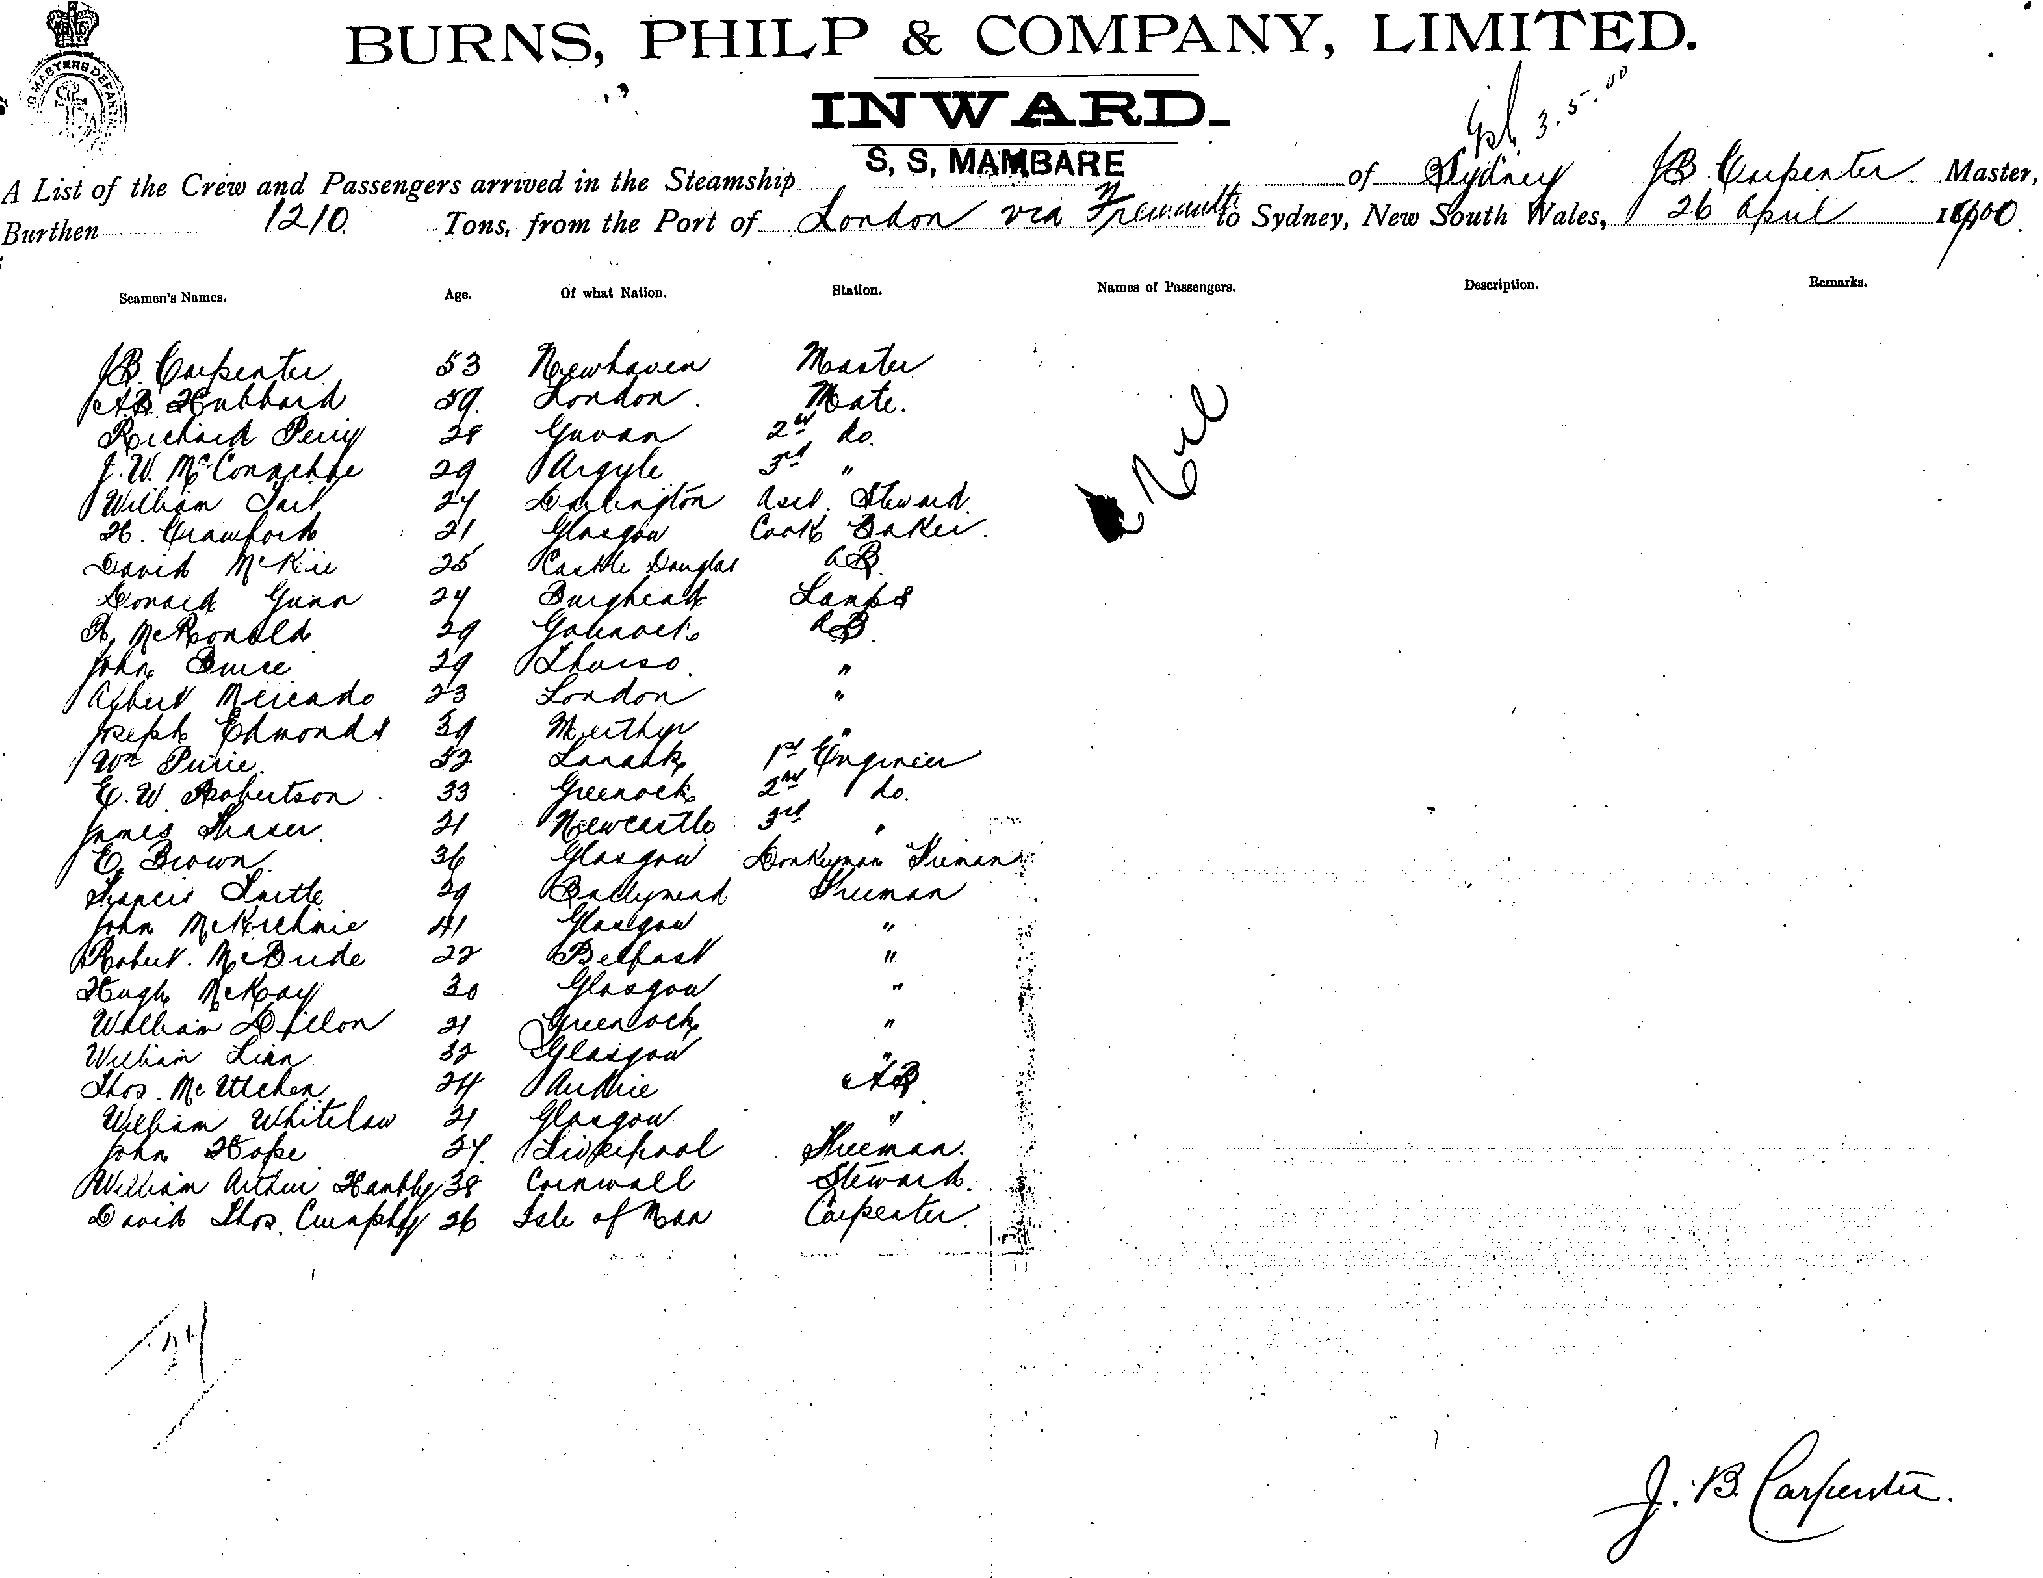 BURNS, PHILP & COMPANY, LIMITED.
INWARD.
3.5.00
A List of the Crew and Passengers arrived in the Steamship S, S, MAMBARE of Sydney J B Carpenter Master,
Burthen 1210 Tons, from the Port of London via Fremantle to Sydney, New South Wales, 26 April 1900
Seamen's Names. Age. Of what Nation. Station. Names of Passengers. Description. Remarks.
J B. Carpenter 53 Newhaven Master
A B Hubbard 59 London. Mate.
Richard Perry 28 Govan 2nd do.
J. W. McConachie 29 Argyle 3rd "
William Tait 24 Darlington Asst. Steward
H. Crawford 21 Glasgow Cook Baker.
David McKie 25 Castle Douglas AB
Donald Gunn 24 Burghead Lamps
R. McRonald 29 Gourock AB.
John Bruce 29 Thurso "
Albert Mercado 23 London "
Joseph Edmonds 39 Merthyr "
Wm Pirie 52 Lanark 1st Engineer
E. W. Robertson 33 Greenock 2nd do.
James Fraser. 21 Newcastle 3rd "
E. Brown 36 Glasgow Donkeyman Fireman
Francis Tuttle 29 Fireman
John McKechnie 41 Glasgow "
Robert. McBride 22 Belfast "
Hugh McKay 30 Glasgow "
William Dillon 21 Greenock "
William 32 Glasgow "
Thos. 24 Airdrie AB
William Whitelaw 21 Glasgow "
John Hope 24. Liverpool Fireman.
William Arthur Hambly 38 Cornwall Steward.
David Thos. 26 Isle of Man Carpenter.
Nil
J. B. Carpenter.